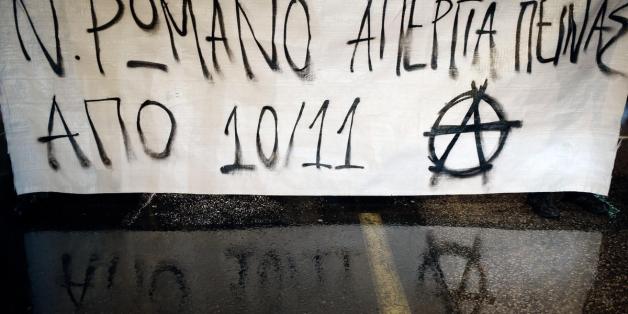 Ν. ΡΩΜΑΝΟ ΑΠΕΡΓΙΑ ΠΕΙΝΑΣ
ΑΠΟ 10/11 Ⓐ